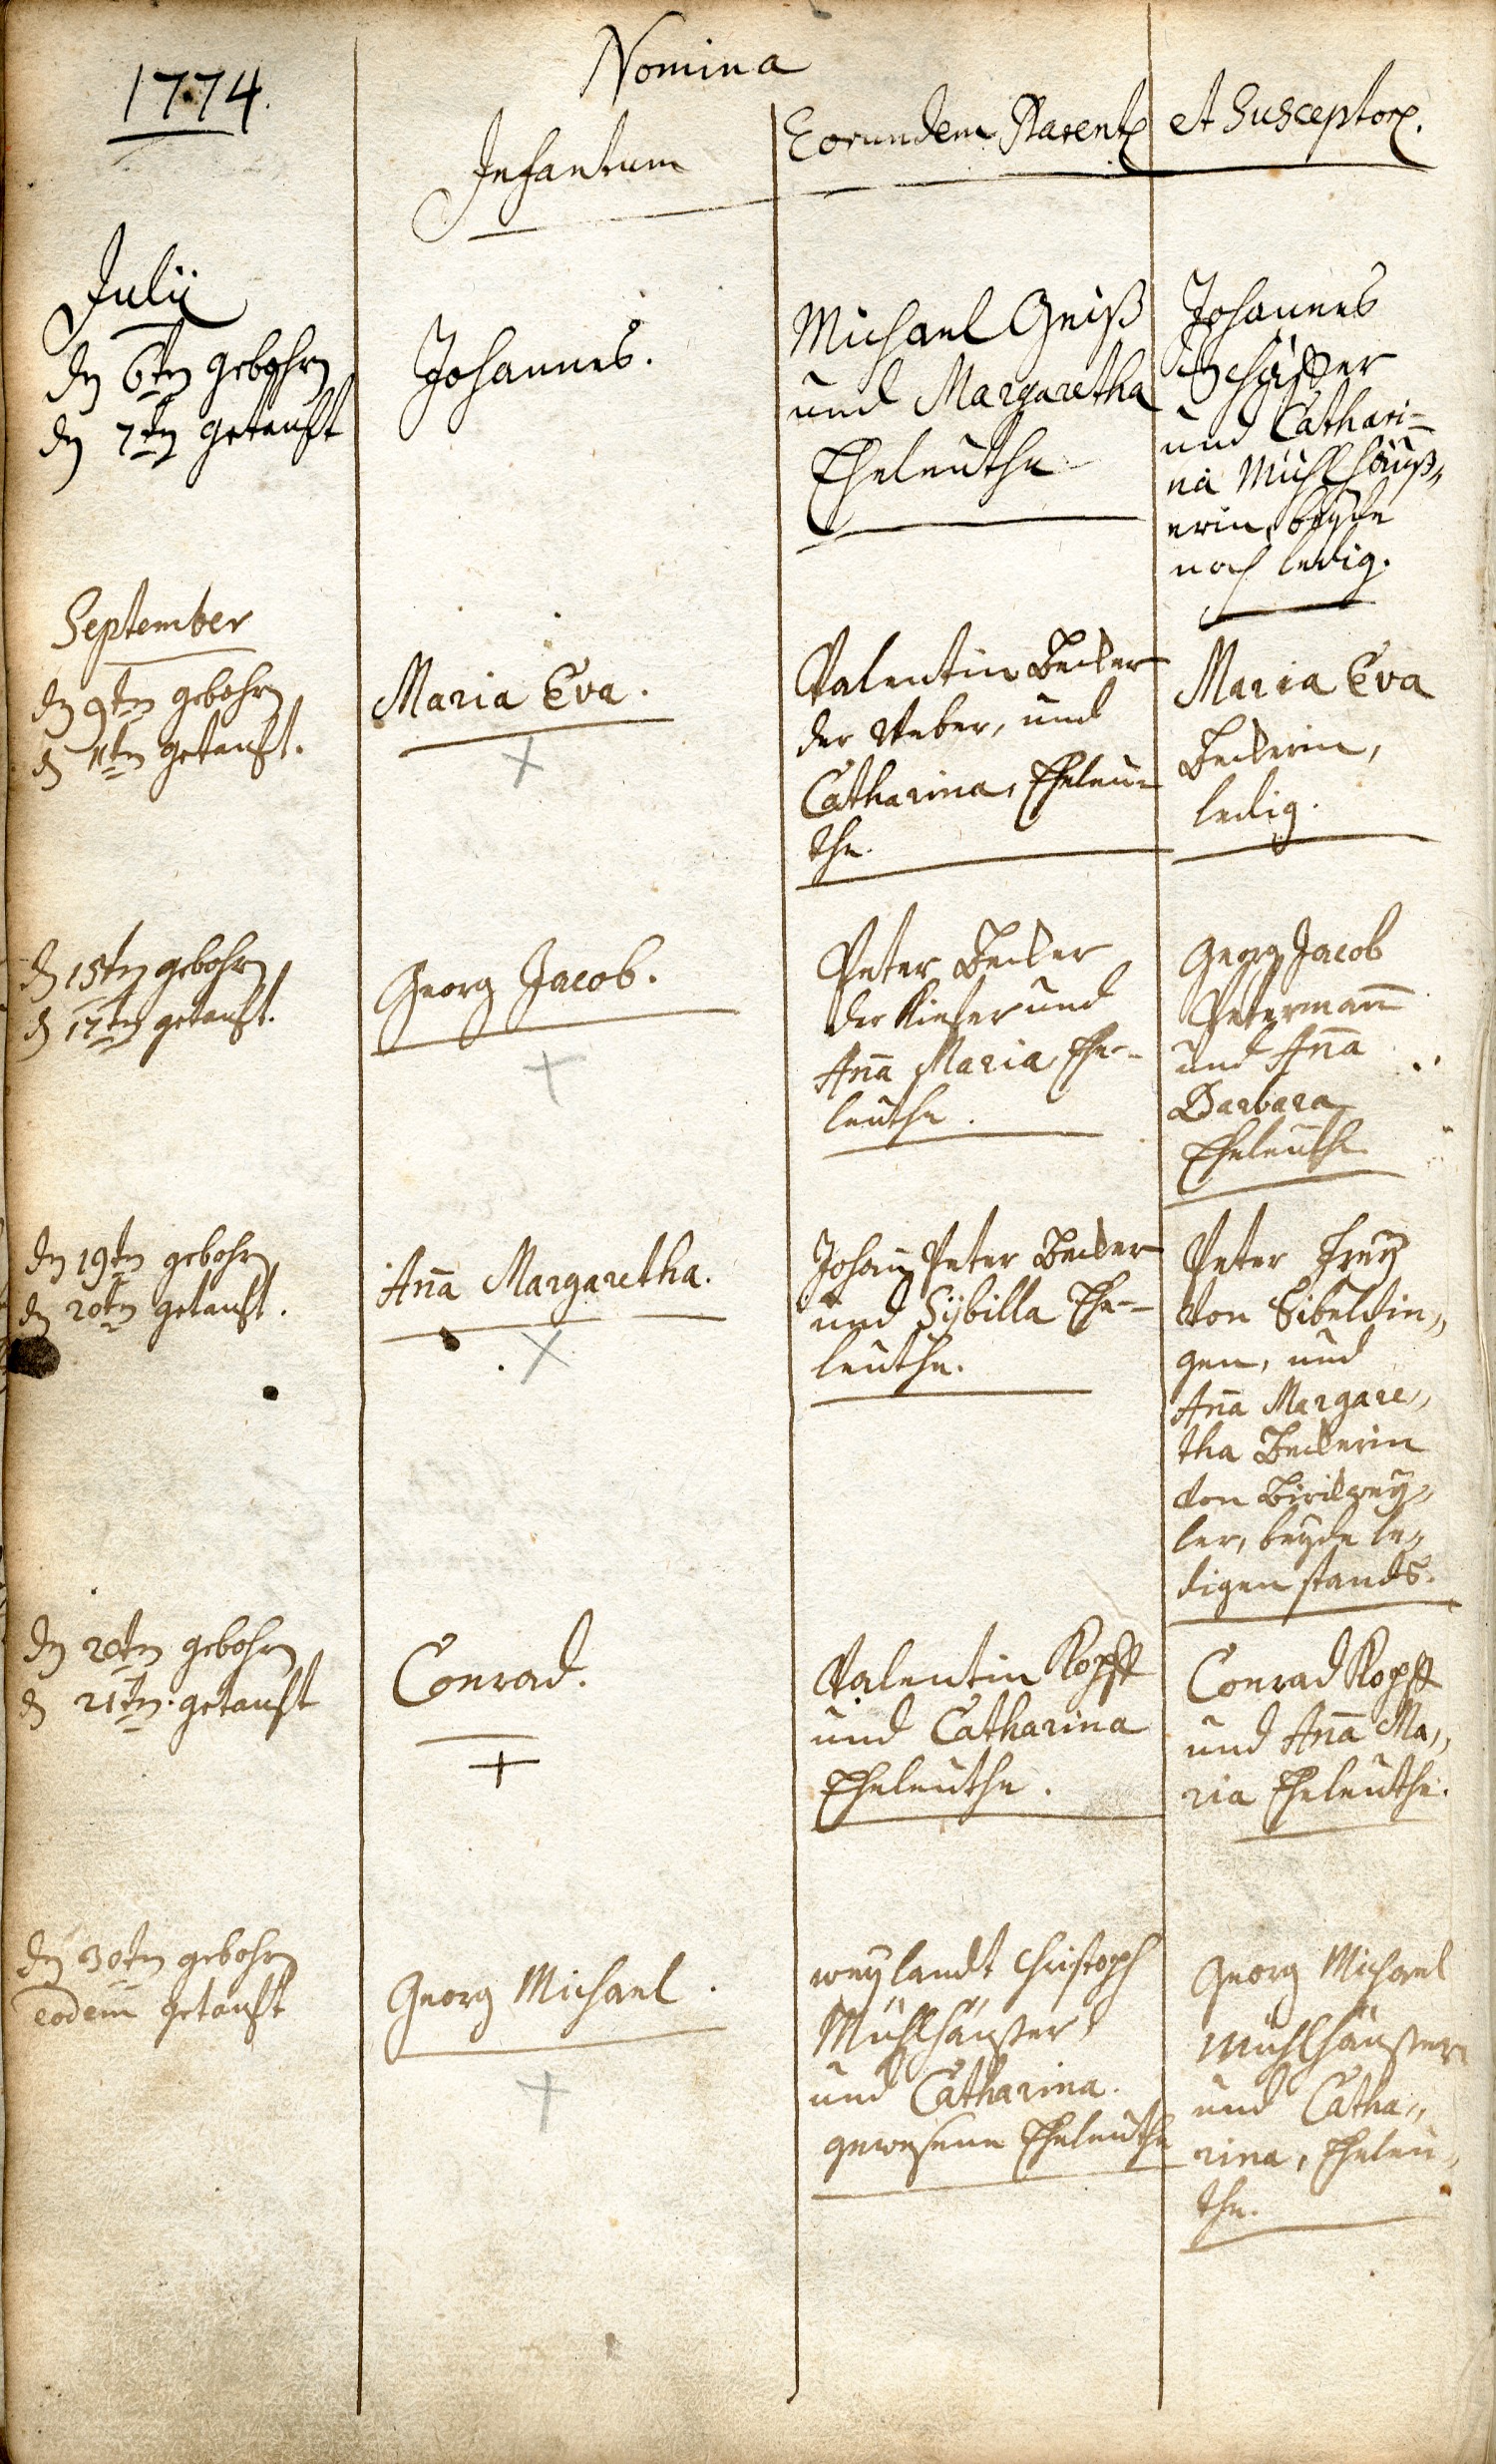 1774.
Nomina
Infantum
Eorundem Parent
et Susceptor.
Julii
dn 6tn gebohrn
dn 7tn getauft
Johannes.
Michael Geiß
und Margaretha
Eheleuthe
Johannes
Schäffer
und Cathari=
na Mühlhäuß„
erin, beyde
noch ledig.
September
dn 9tn gebohrn
d 11tn getauft.
Maria Eva.
Valentin Becker
der Weber, und
Catharina, Eheleu=
the.
Maria Eva
Beckerin,
ledig.
d 15tn gebohrn
d 17tn getauft.
Georg Jacob.
Peter Becker
der Kiefer und
Anna Maria Ehe=
leuthe.
Georg Jacob
Petermann
und Anna
Barbara
Eheleuthe.
dn 19tn gebohrn
dn 20tn getauft.
Anna Margaretha.
Johann Peter Becker
und Sÿbilla Ehe=
leuthe.
Peter Frey
von Sibeldin„
gen, und
Anna Margare„
tha Beckerin
von Birckwey„
ler, beyde le„
digen stands.
dn 20tn gebohrn
d 21tn. getauft
Conrad.
Valentin Kopff
und Catharina
Eheleuthe.
Conrad Kopff
und Anna Ma„
ria Eheleuthe.
dn 30tn gebohrn
eodem getauft
Georg Michael.
weylandt Christoph
Mühlhäußer
und Catharina.
gewesene Eheleuthe
Georg Michael
Mühlhäußer
und Catha„
rina, Eheleu„
the.